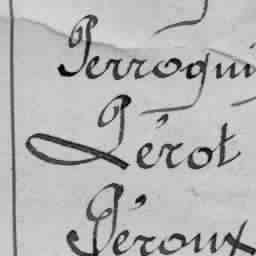 Perroqui
Pérot
Péroux